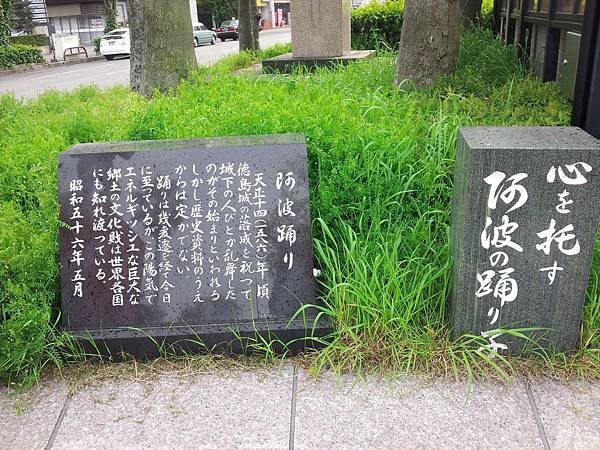 阿波踊り
天正十四(一五八六)年頃
徳島城の落成を祝って
城下の人びとが乱舞した
のがその始まりといわれる
しかし歴史資料のうえ
からは定かでない.
踊りは幾変遷を経て今日
に至っているがこの陽気で
エネルギッシュな巨大な
郷土の文化財は世界各国
にも知れ渡っている.
昭和五十六年五月
心を托す
阿波の踊り子